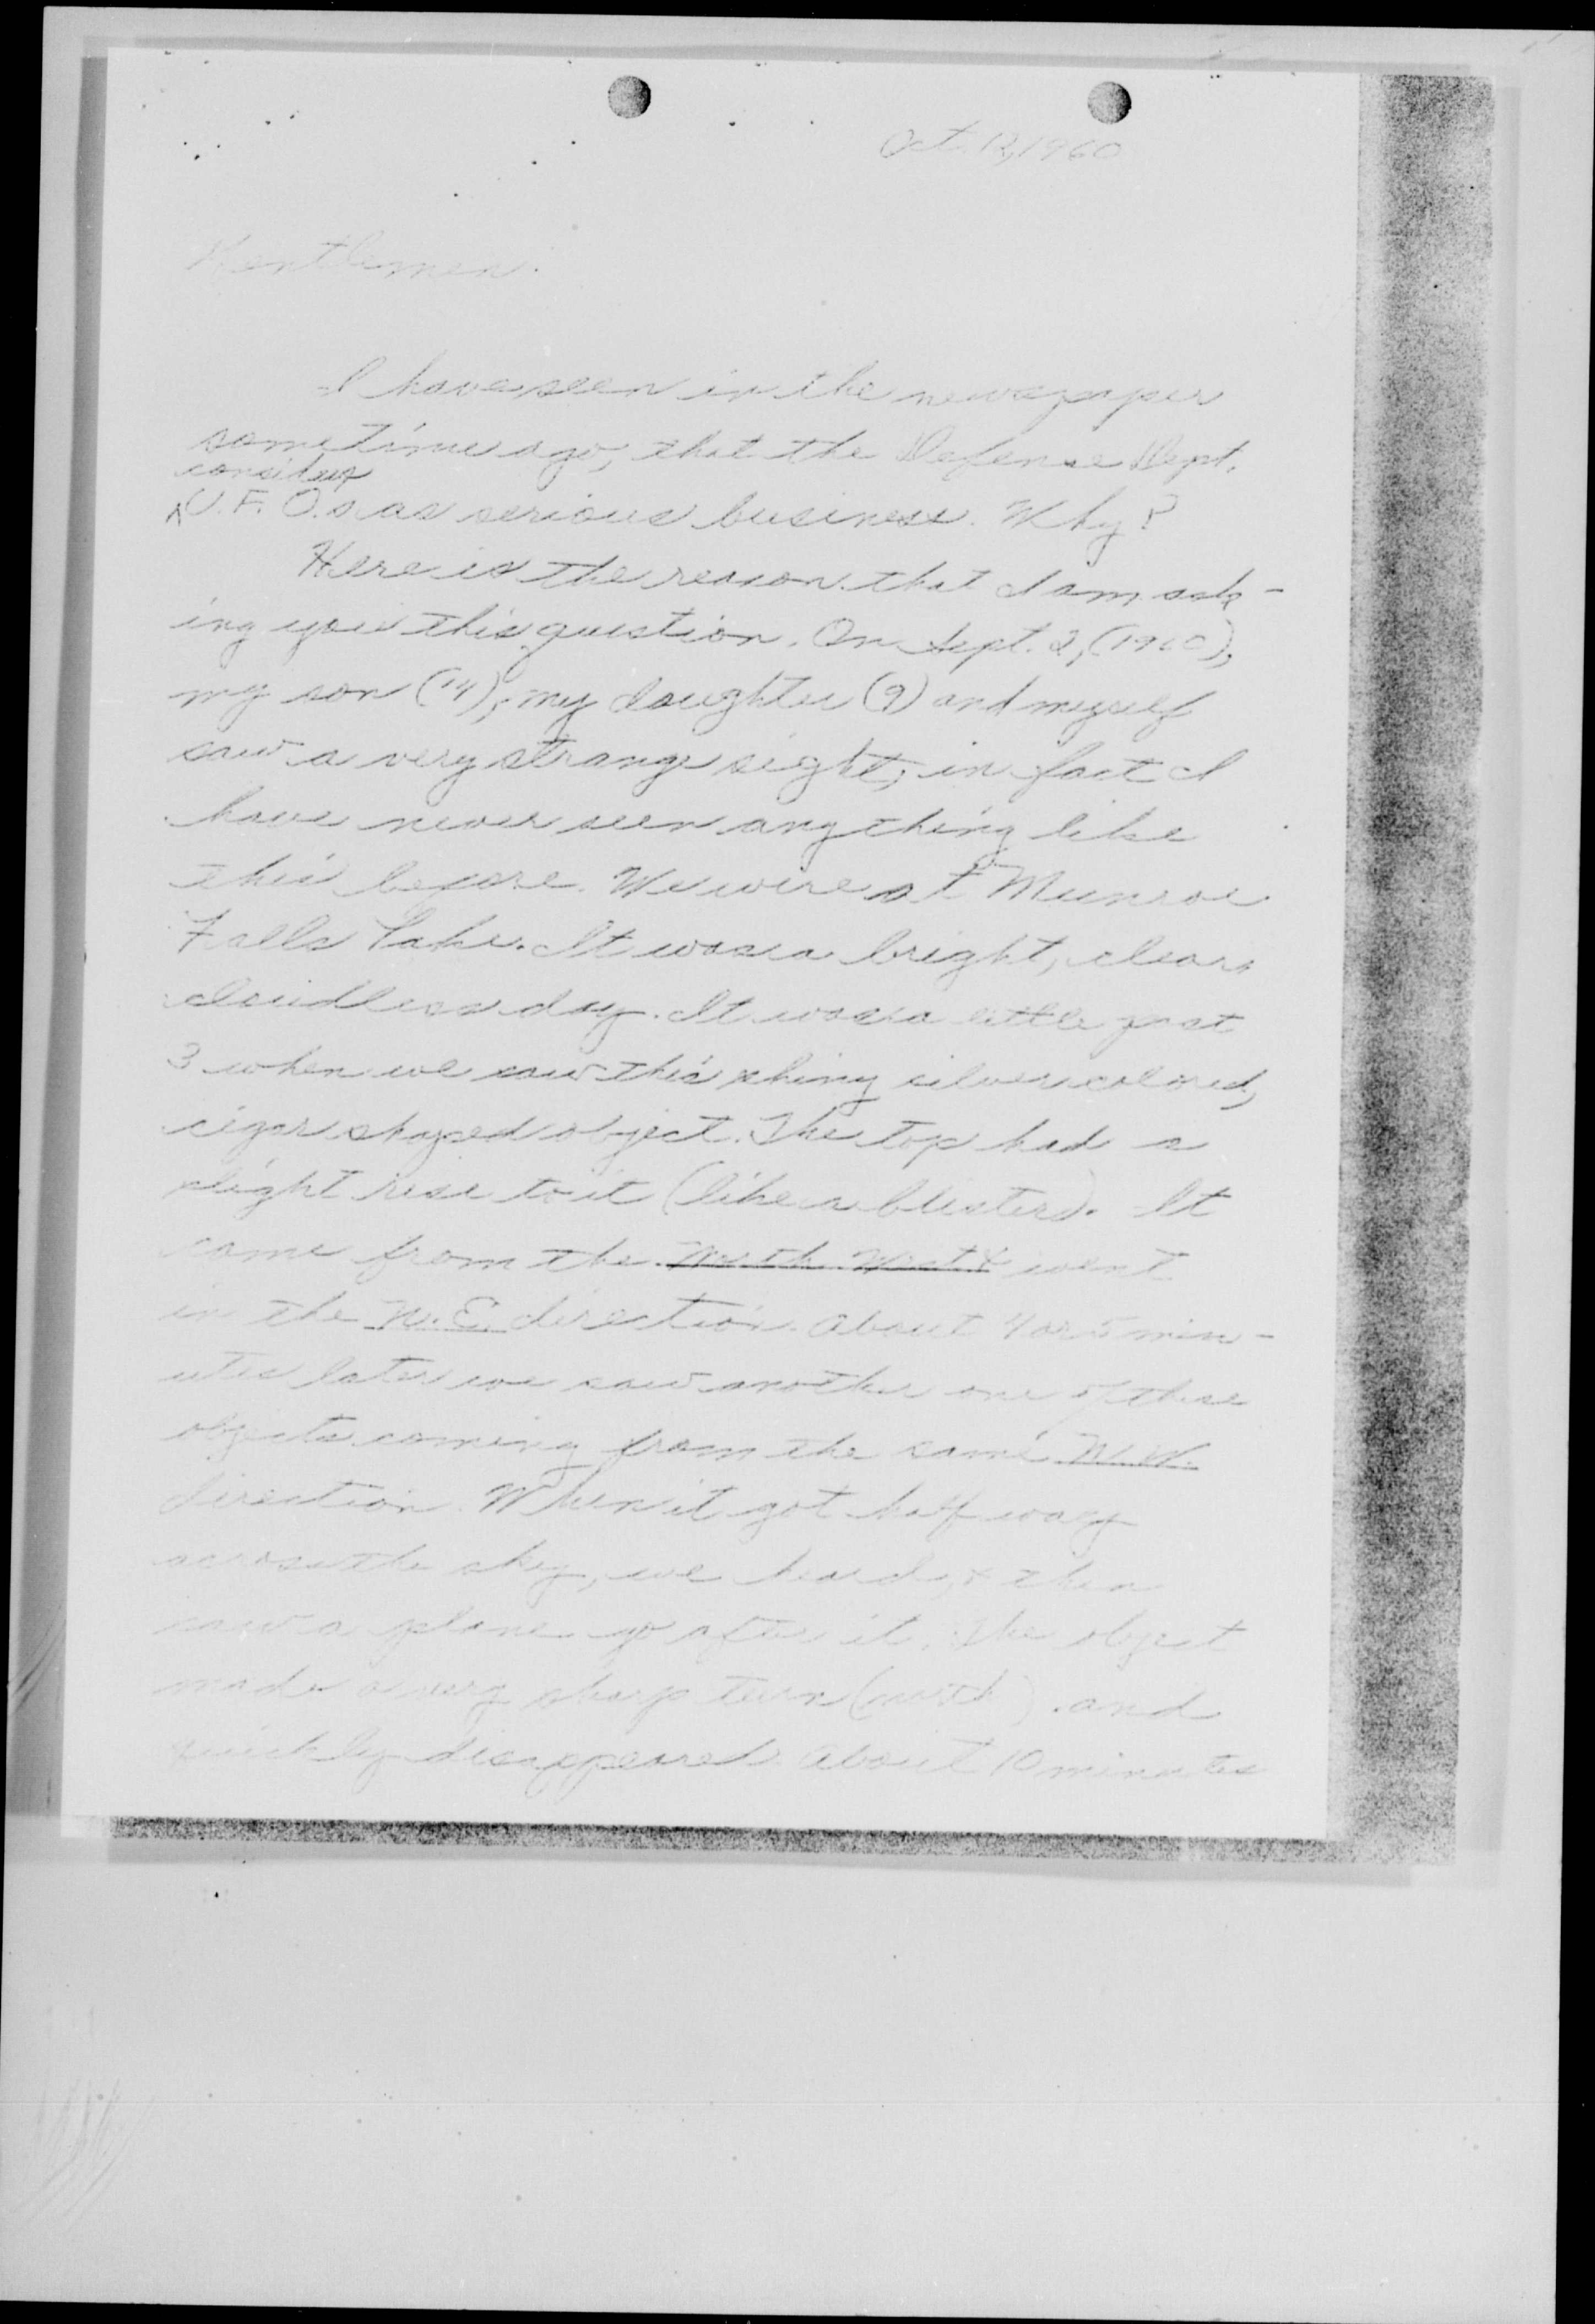 Oct. 12, 1960
Gentlemen:
I have seen in the newspaper
some time ago, that the Defense Dept.
considers
^U.F.O.s as serious business. Why?
Here is the reason that I am ask-
ing you this question. On Sept. 2, (1960),
my son (14), my daughter (9) and myself
saw a very strange sight, in fact I
have never seen anything like
this before. We were at Munroe
Falls Lake. It was a bright, clear,
cloudless day. It was a little past
3 when we saw this shiny silver colored,
cigar shaped object. The top had a
slight rise to it (like a blister). It
came from the North West & went
in the N.E. direction. About 4 or 5 min-
utes later we saw another one of these
objects coming from the same N.W.
direction. When it got half way
across the sky, we heard, & then
saw a plane go after it. The object
made a very sharp turn (north) and
quickly disappeared. About 10 minutes